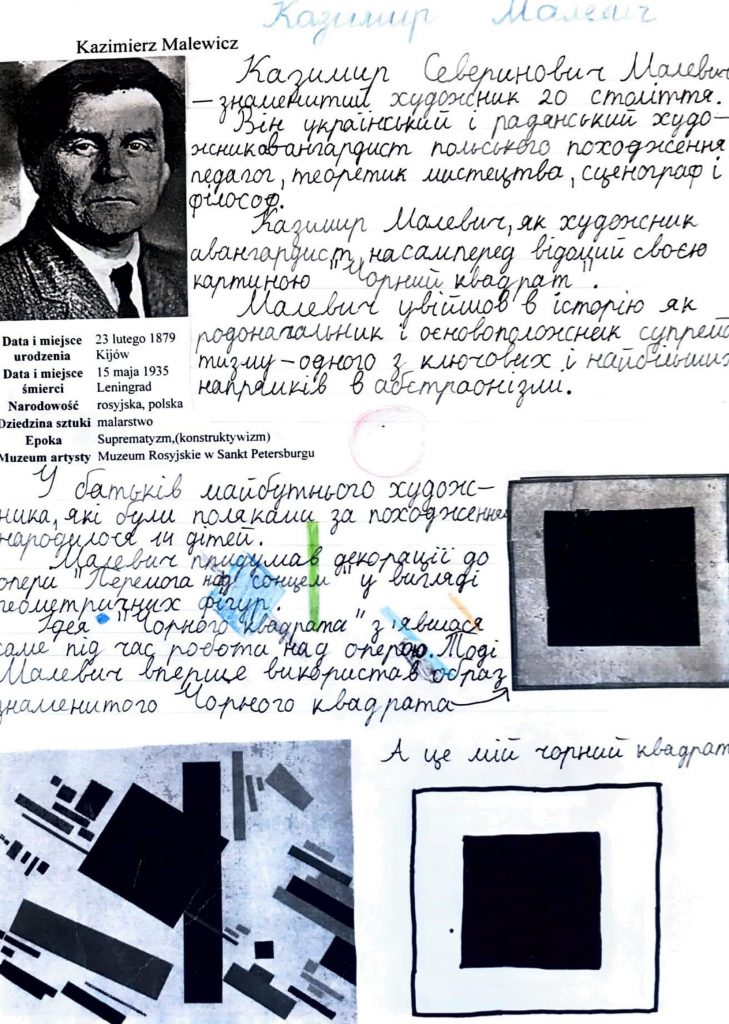 Казимир Малевіч
Kazimierz Malewicz
Казимир Северинович Малевич
– знаменитий художник 20 століття.
Він український і радянський худо-
жник авангардист польського походження
педагог, теоретик мистецтва, сценограф і
філософ.
Казимир Малевич, як художник
авангардист, насамперед відомий своєю
картиною "Чорний квадрат".
Малевич увійшов в історію як
родоначальник і основоположник супрема
тизму – одного з ключових і найбільших
напрямків в абстраонізми.
Data i miejsce urodzenia 23 lutego 1879 Kijów
Data i miejsce śmierci 15 maja 1935 Leningrad
Narodowość rosyjska, polska
Dziedzina sztuki malarstwo
Epoka Suprematyzm,(konstruktywizm)
Muzeum artysty Muzeum Rosyjskie w Sankt Petersburgu
У батьків майбутнього худож-
ника, які були поляками за походження
народилося 14 дітей.
Малевич придумав декорації до
опери "Перемога над сонцем" у вигляді
геометричних фігур.
Ідея "Чорного квадрата" з'явилася
саме під час робота над оперою. Тоді
Малевич вперше використав образ
знаменитого Чорного квадрата
А це мій чорний квадрат